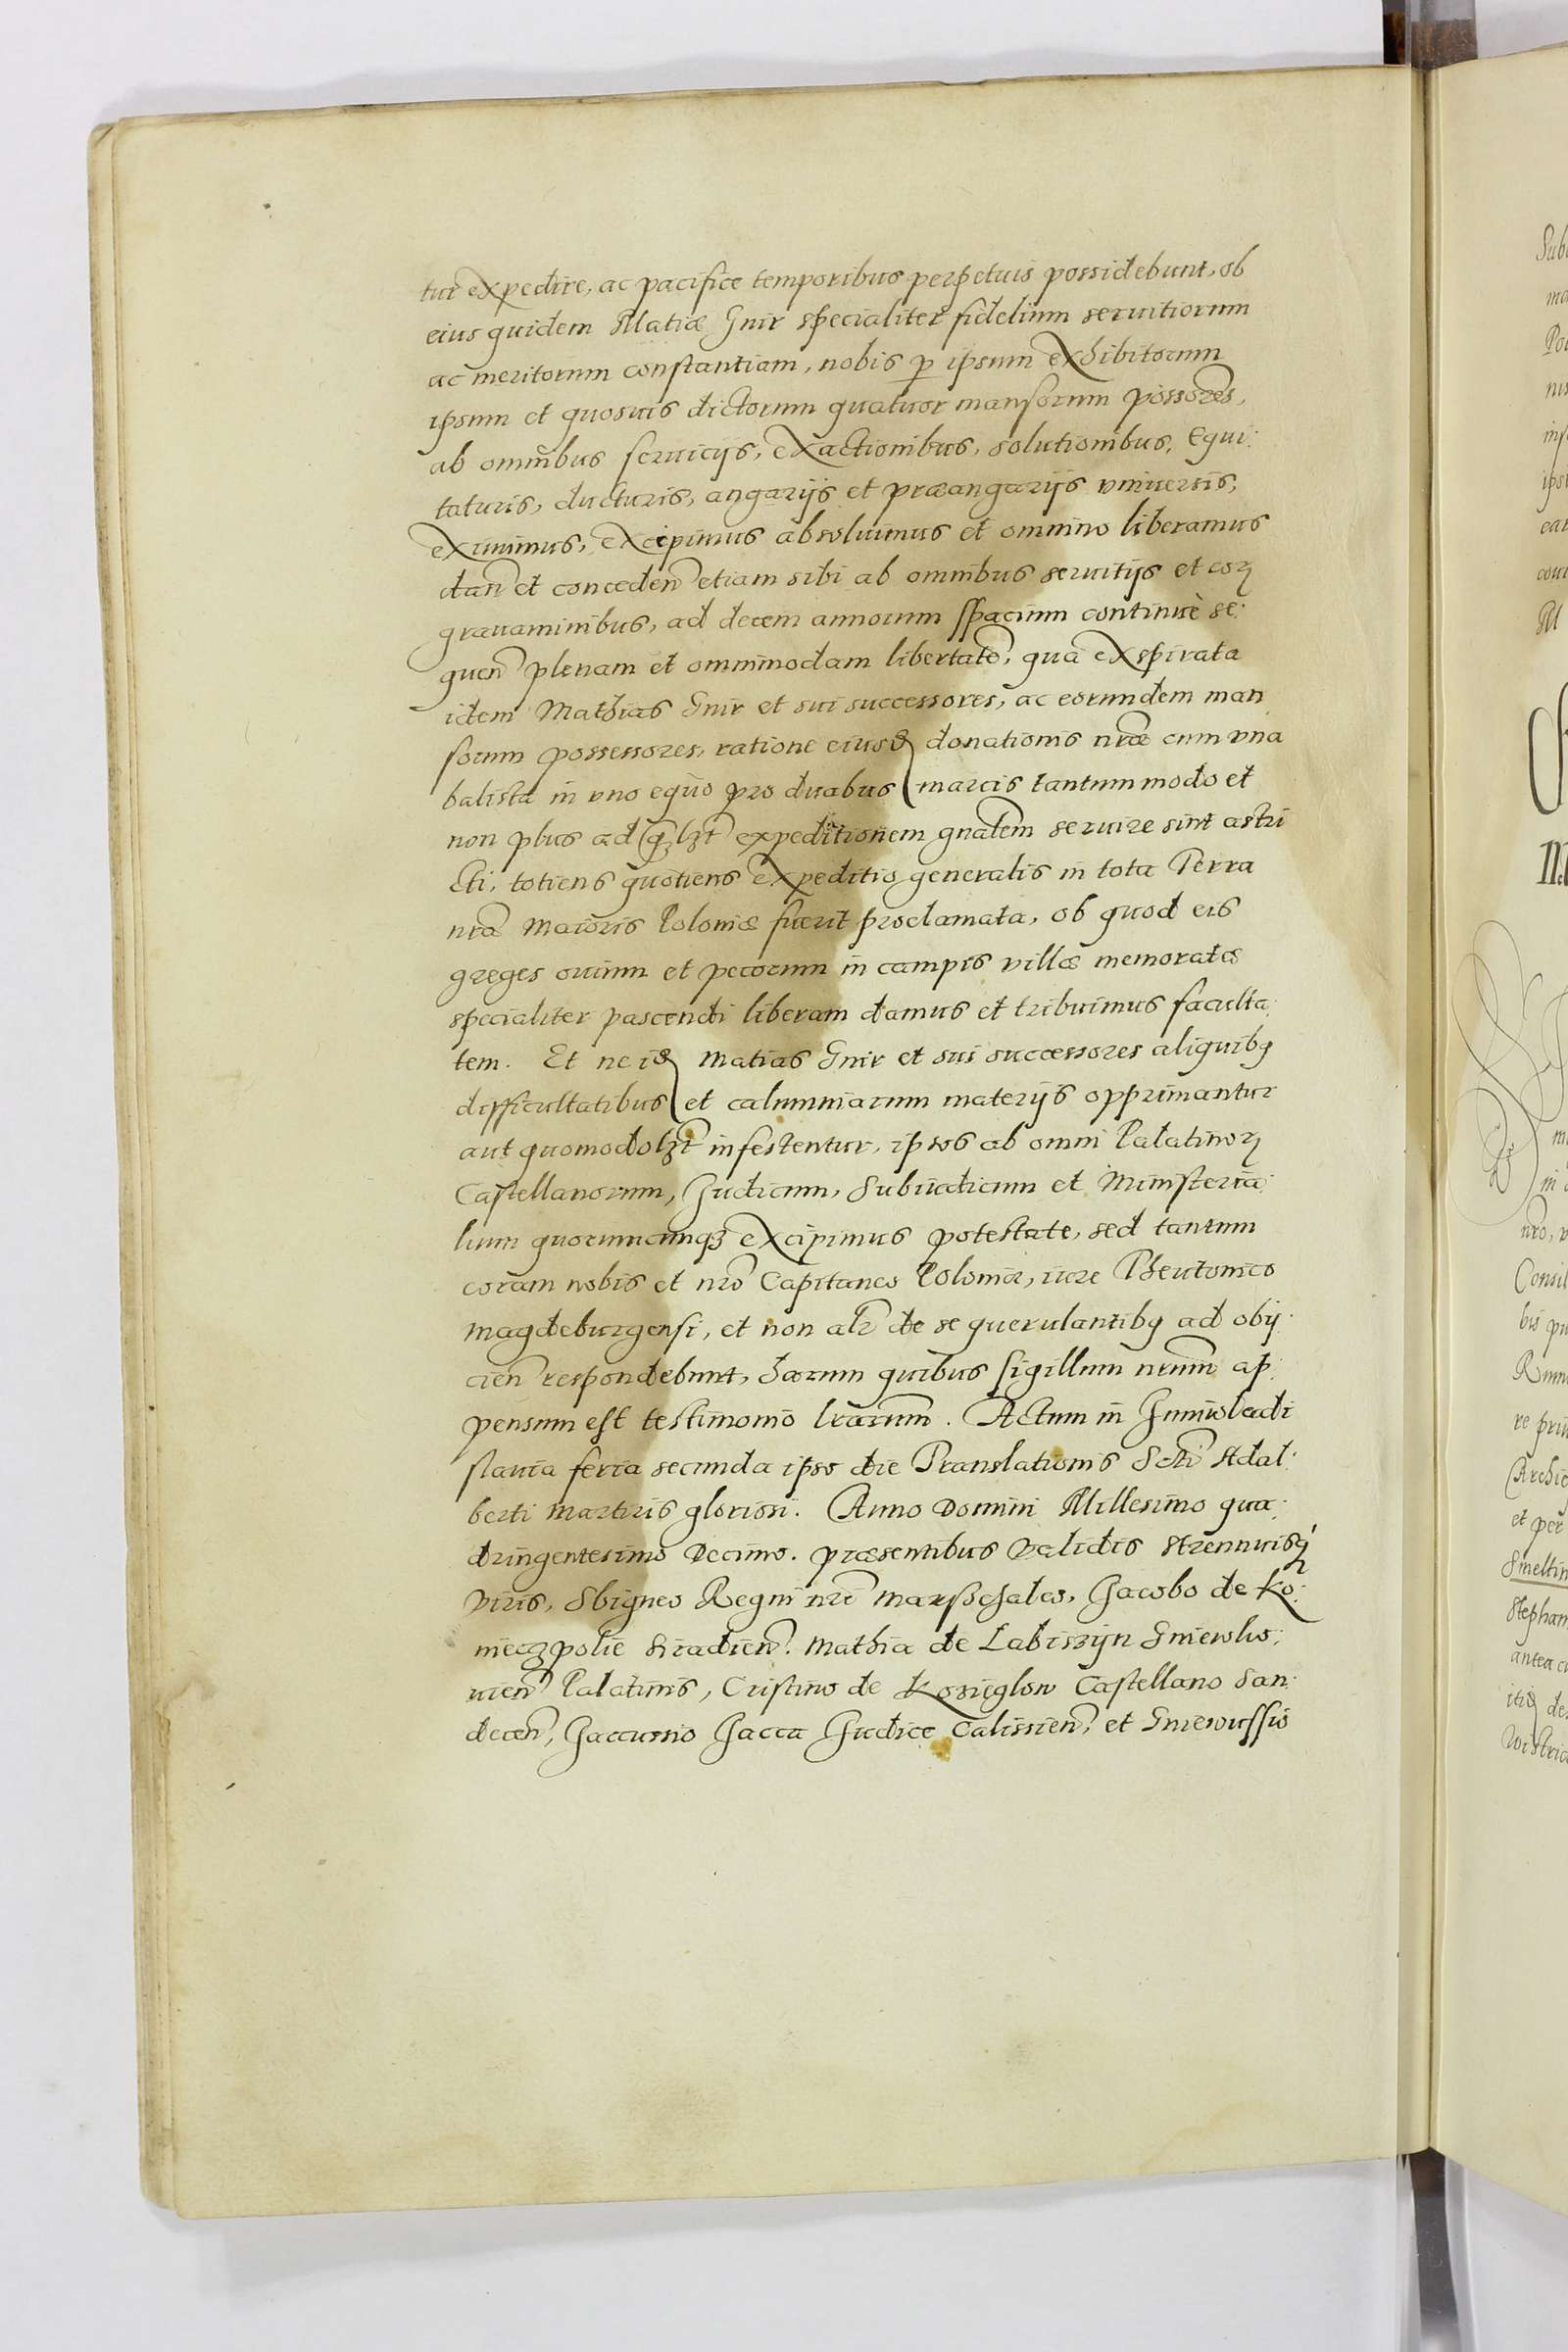 tur expedire, ac pacifice temporibus perpetuis possidebunt, ob
eius quidem Matiæ Gnir specialiter fidelium seruitiorum
ac meritorum constantiam, nobis p̱ ipsum exhibitorum
ipsum et quosuis dictorum quatuor mansorum possores,
ab omnibus seruicijs, exactionibus, solutionibus, Equi:
taturis, ducturis, angarijs et præangarijs vniuersis,
eximimus, excipimus absoluimus et omnino liberamus
dan̄ et conceden̄ etiam sibi ab omnibus seruitijs et eoꝝ
grauaminibus, ad decem annorum spacium continuè se:
quen̄ plenam et omnimodam libertatē, qua exspirata
idem Mathias Gnir et sui successores, ac eorundem man
sorum possessores, ratione eiusd donationis nr̄æ cum vna
balista in vno equo pro duabus marcis tantummodo et
non plus ad qꝫlꝫt expeditionem gnālem seruire sint astri
cti, totiens quotiens expeditio generalis in tota Terra
nrā Maioris Poloniæ fuerit proclamata, ob quod eis
greges ouium et pecorum in campis villæ memoratæ
specialiter pascendi liberam damus et tribuimus faculta:
tem. Et ne id Matias Gnir et sui successores aliquibꝯ
difficultatibus et calumniarum materijs opprimantur
aut quomodolꝫt infestentur, ipsos ab omni Palatinoꝝ
Castellanorum, Judicum, Subiudicum et Ministeria:
lium quorumcunqꝫ excipimus potestate, sed tantum
coram nobis et nrō Capitaneo Poloniæ, iure Theutonico
Magdeburgensi, et non alr̄ de se querulantibꝯ ad obij:
cien̄ respondebunt, harum quibus sigillum nrūm ap:
pensum est testimonio lrārum. Actum in Juniwladi
slauia feria secunda ipso die Translationis Scti Adal:
berti Martiris gloriosi. Anno Domini Millesimo qua:
dringentesimo Decimo. præsentibus Validis Strennuisq́
Viris, Sbigneo Regni nri Marschalco, Jacobo de Ko:
nieczpolie Siradien̄. Mathia de Labiszijn Gniewko:
uien̄ Palatinis, Cristino de Kozieglow Castellano San:
decen̄, Jaccussio Jacca Judice Calissien̄, et Gniewussio